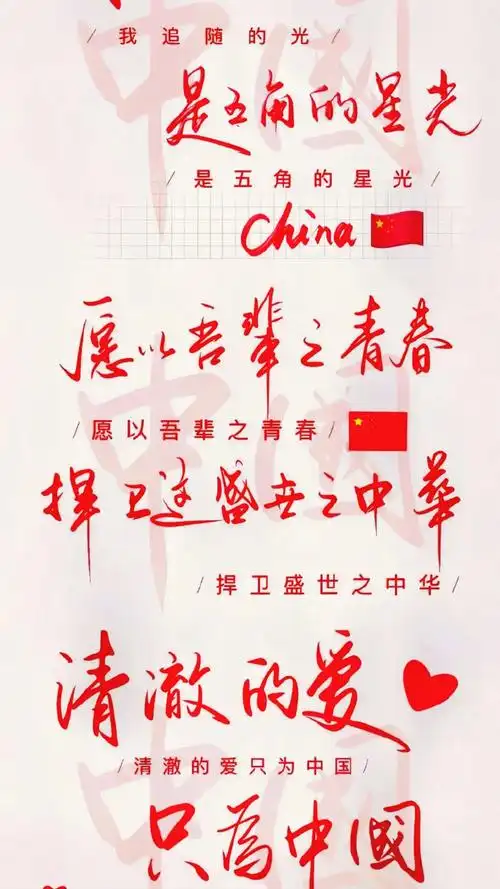 / 我追随的光 /
是五角的星光
/ 是五角的星光 /
China
愿以吾辈之青春
/ 愿以吾辈之青春 /
捍卫这盛世之中華
/ 捍卫盛世之中华 /
清澈的爱
/ 清澈的爱只为中国 /
只為中國